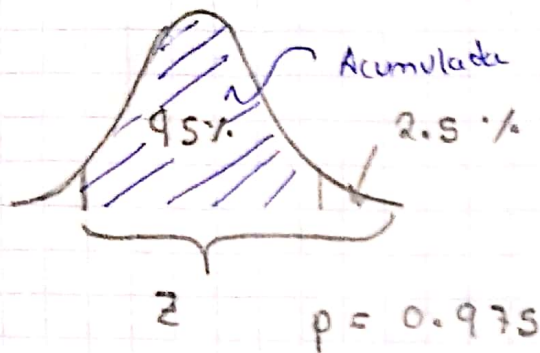 Acumulada
95%
2.5 %
Z
p = 0.975